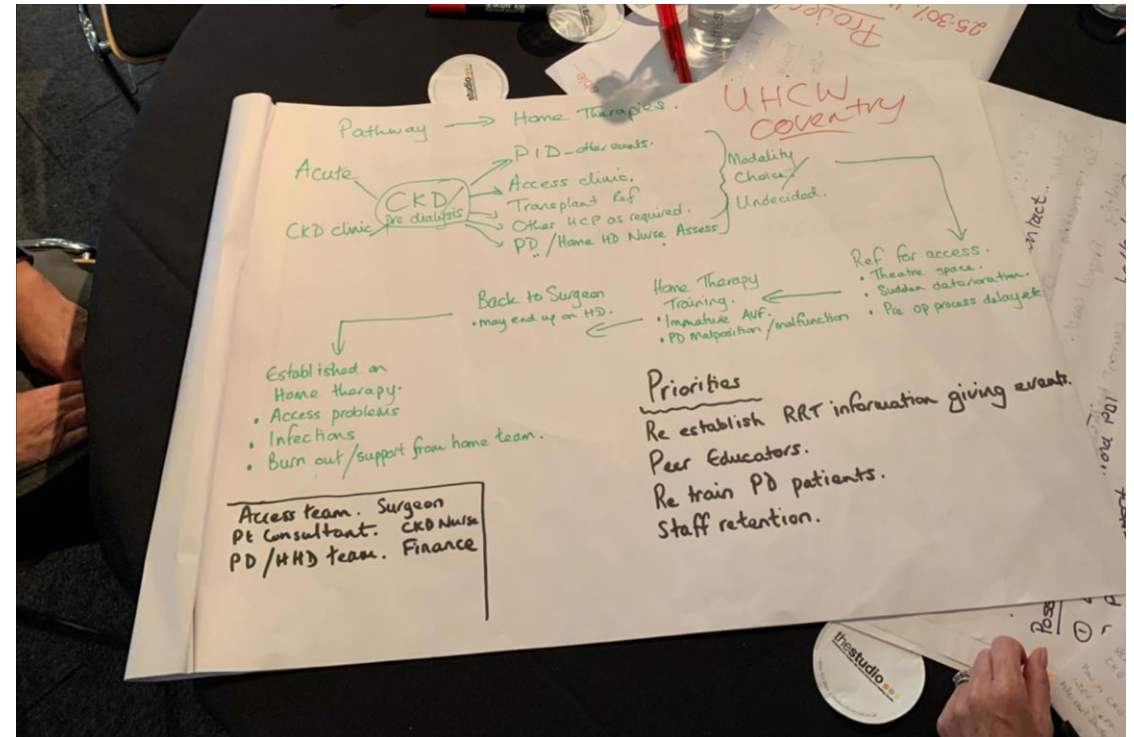 UHCW
Coventry
Pathway → Home Therapies.
Acute
CKD clinic
CKD
Pre dialysis
PID - other events.
Access clinic.
Transplant Ref
Other HCP as required.
PD / Home HD Nurse Assess
Modality
Choice/
Undecided.
Ref for access.
• Theatre space.
• Sudden deterioration.
• Pre op process delayed
Home Therapy
Training.
• Immature AVF.
• PD Malposition/malfunction
Back to Surgeon
• may end up on HD.
Established on
Home therapy.
• Access problems
• Infections
• Burn out/support from home team.
Priorities
Re establish RRT information giving events.
Peer Educators.
Re train PD patients.
Staff retention.
Access team. Surgeon
Pt Consultant. CKD Nurse
PD/HHD team. Finance
25-30%
thestudio
thestudio